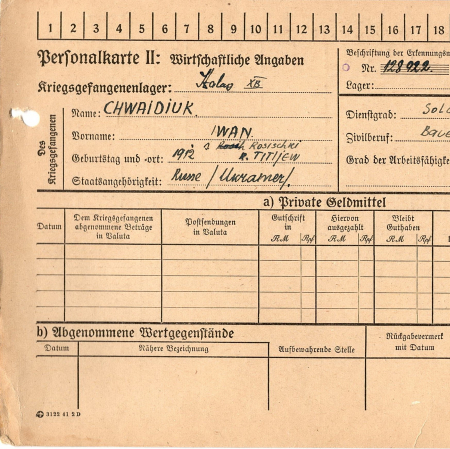 1 2 3 4 5 6 7 8 9 10 11 12 13 14 15 16 17 18
Personalkarte II: Wirtschaftliche Angaben
Kriegsgefangenenlager: Stalag XB
Beschriftung der Erkennungsm
Nr. 128922.
Lager:
Des Kriegsgefangenen
Name: CHWAIDIUK.
Vorname: IWAN.
Geburtstag und -ort: 1912 s Rosischki
r. TITIJEW
Staatsangehörigkeit: Russe / Ukrainer/.
Dienstgrad: SOL
Zivilberuf: BAUE
Grad der Arbeitsfähigke
a) Private Geldmittel
Datum
Dem Kriegsgefangenen abgenommene Beträge in Valuta
Postsendungen in Valuta
Gutschrift in RM Rpf
Hiervon ausgezahlt RM Rpf
Bleibt Guthaben RM Rpf
b) Abgenommene Wertgegenstände
Datum
Nähere Bezeichnung
Aufbewahrende Stelle
Rückgabevermerk mit Datum
3125 41 2 D